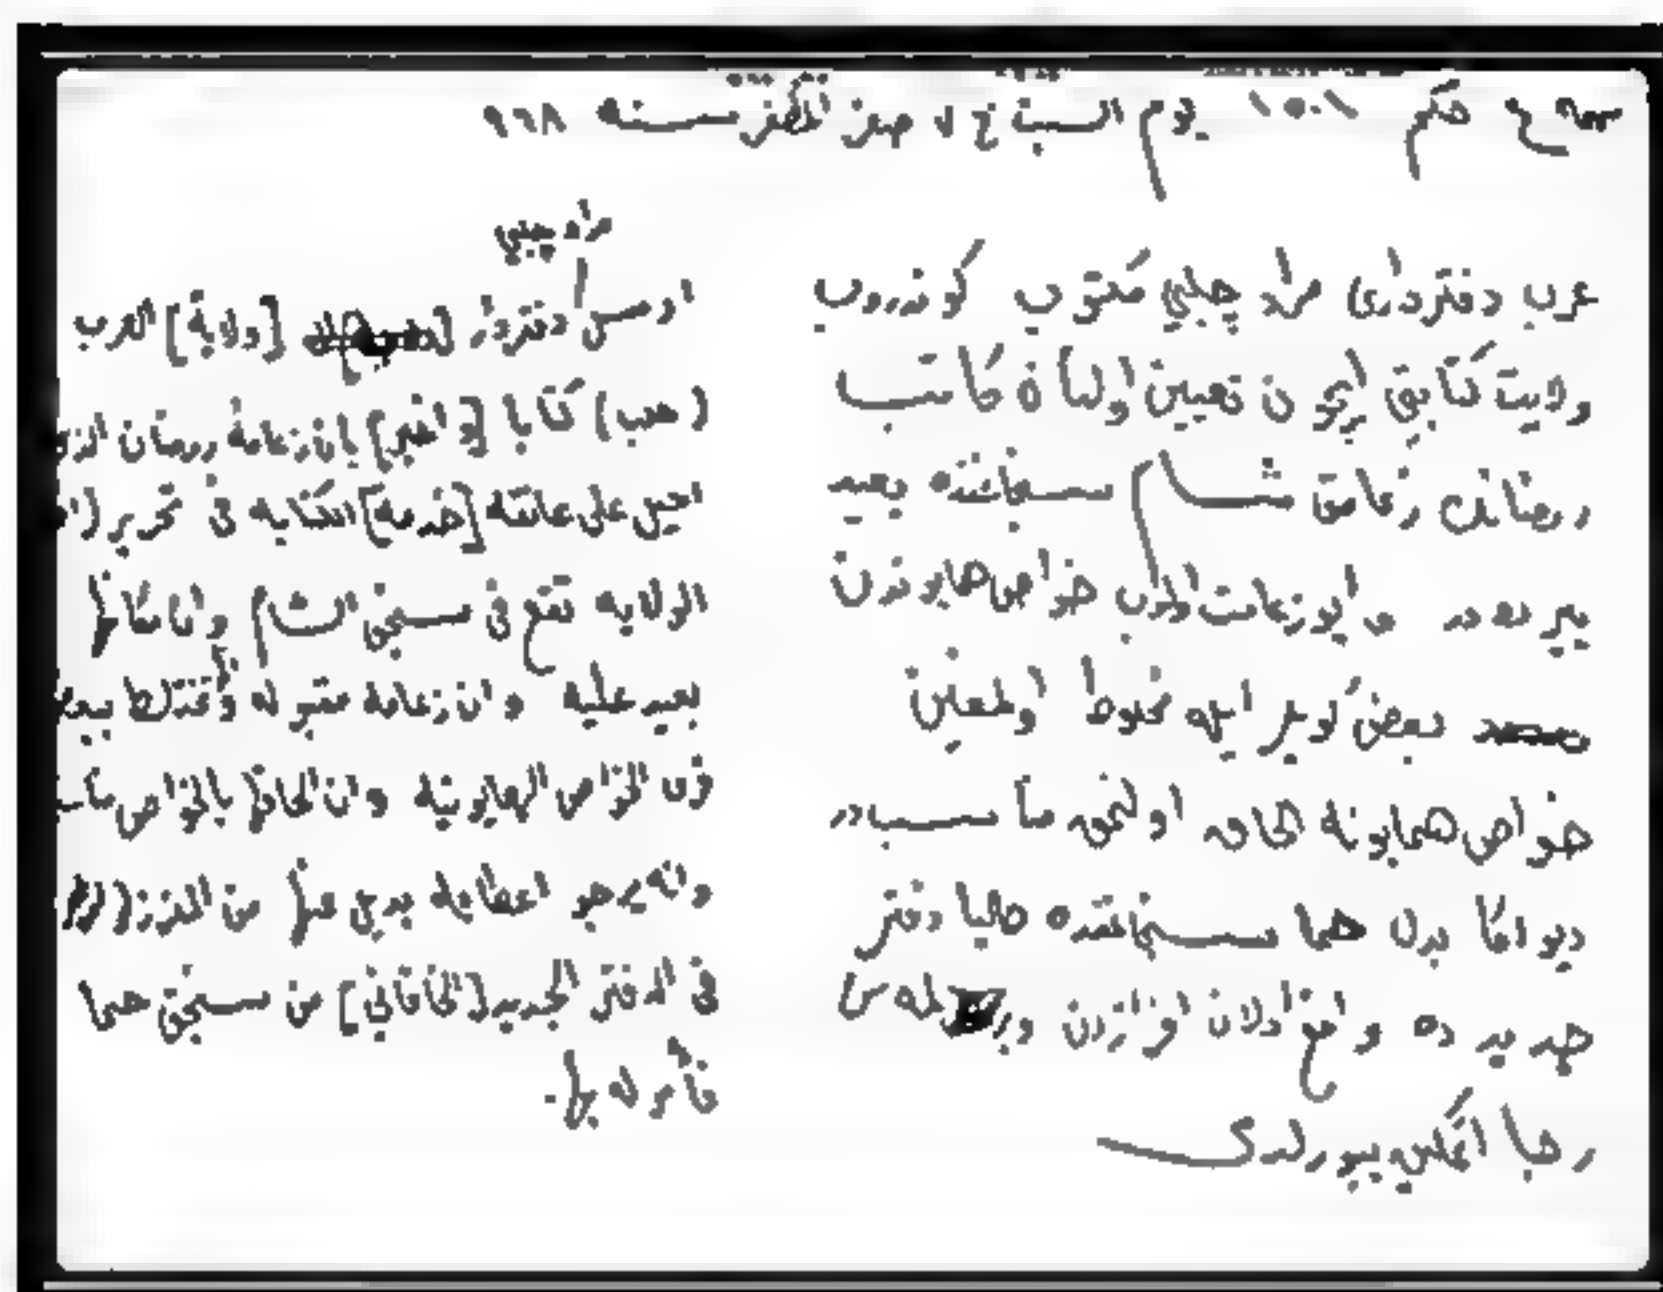 حكم ١٥٠١ يوم السبت في ٧ صفر المظفر سنه ٩٦٨
عرب دفترداری مراد چلبي مكتوب كوندروب
ولايت كتابتي ايچون تعيين اولنان كاتب
رمضانك زعامتی شام سنجاغنده بعيد
يرده در و ايو زعامت اولوب خواص همايوندن
بعض كويلر ايله مخلوط اولمغين
خواص همايونه الحاق اولنمق مناسبدر
ديو اكا بدل حما سنجاغنده حاليا دفتر
جديده ده واقع اولان افرازدن ويرلمه سن
رجا ايتمكين بيورلدی
مراد چلبي
ارسل دفتردار [ولاية] العرب
(حلب) كتابا [و اخبر] بان زعامة رمضان الذي
احيل على عاتقه [خدمة] الكتابه في تحرير
الولايه تقع في سنجق الشام وان مكانها
بعيد عليه وان زعامته مقبوله وتختلط ببعض
قرى الخواص الهمايونيه وان الحاقها بالخواص مناسب
وانه يرجو اعطائه بديل عنها من الفرز
في الدفتر الجديد [الخاقاني] من سنجق حما
فأمر له بها.